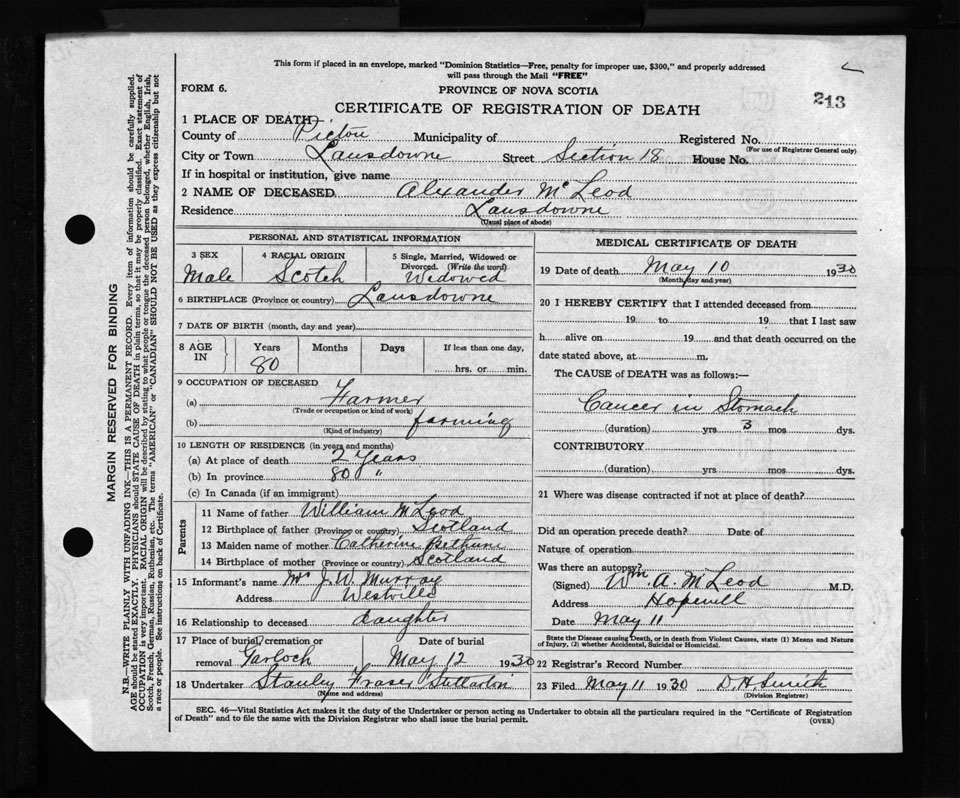 This form if placed in an envelope, marked "Dominion Statistics—Free, penalty for improper use, $300," and properly addressed
will pass through the Mail "FREE"
FORM 6.
PROVINCE OF NOVA SCOTIA
213
CERTIFICATE OF REGISTRATION OF DEATH
1 PLACE OF DEATH
County of Pictou Municipality of Registered No.
(For use of Registrar General only)
City or Town Lansdowne Street Section 18 House No.
If in hospital or institution, give name
2 NAME OF DECEASED Alexander McLeod
Residence Lansdowne
(Usual place of abode)
PERSONAL AND STATISTICAL INFORMATION
3 SEX 4 RACIAL ORIGIN 5 Single, Married, Widowed or
Divorced. (Write the word)
Male Scotch Widowed
6 BIRTHPLACE (Province or country) Lansdowne
7 DATE OF BIRTH (month, day and year)
8 AGE IN Years Months Days If less than one day,
80 hrs. or min.
9 OCCUPATION OF DECEASED
(a) Farmer
(Trade or occupation or kind of work)
(b) farming
(Kind of industry)
10 LENGTH OF RESIDENCE (in years and months)
(a) At place of death 2 Years
(b) In province 80 "
(c) In Canada (if an immigrant)
Parents
11 Name of father William McLeod
12 Birthplace of father (Province or country) Scotland
13 Maiden name of mother Catherine Bethune
14 Birthplace of mother (Province or country) Scotland
15 Informant's name Mrs J. W. Murray
Address Westville
16 Relationship to deceased daughter
17 Place of burial, cremation or Date of burial
removal Garloch May 12 1930
18 Undertaker Stanley Fraser Stellarton
(Name and address)
MEDICAL CERTIFICATE OF DEATH
19 Date of death May 10 1930
(Month, day and year)
20 I HEREBY CERTIFY that I attended deceased from
19 to 19 that I last saw
h alive on 19 and that death occurred on the
date stated above, at m.
The CAUSE of DEATH was as follows:—
Cancer in Stomach
(duration) yrs 3 mos dys.
CONTRIBUTORY
(duration) yrs mos dys.
21 Where was disease contracted if not at place of death?
Did an operation precede death? Date of
Nature of operation
Was there an autopsy?
(Signed) Wm. A. McLeod M.D.
Address Hopewell
Date May 11
State the Disease causing Death, or in death from Violent Causes, state (1) Means and Nature
of Injury, (2) whether Accidental, Suicidal or Homicidal.
22 Registrar's Record Number
23 Filed May 11 1930 D H Smith
(Division Registrar)
SEC. 46—Vital Statistics Act makes it the duty of the Undertaker or person acting as Undertaker to obtain all the particulars required in the "Certificate of Registration
of Death" and to file the same with the Division Registrar who shall issue the burial permit.
(OVER)
MARGIN RESERVED FOR BINDING
N.B.—WRITE PLAINLY WITH UNFADING INK—THIS IS A PERMANENT RECORD. Every item of information should be carefully supplied.
AGE should be stated EXACTLY. PHYSICIANS should STATE CAUSE OF DEATH in plain terms, so that it may be properly classified. Exact statement of
OCCUPATION is very important. RACIAL ORIGIN will be described by stating to what people or tongue the deceased person belonged, whether English, Irish,
Scotch, French, German, Russian, Ruthenian, etc. The terms "AMERICAN" or "CANADIAN" SHOULD NOT BE USED as they express citizenship but not
a race or people. See instructions on back of Certificate.